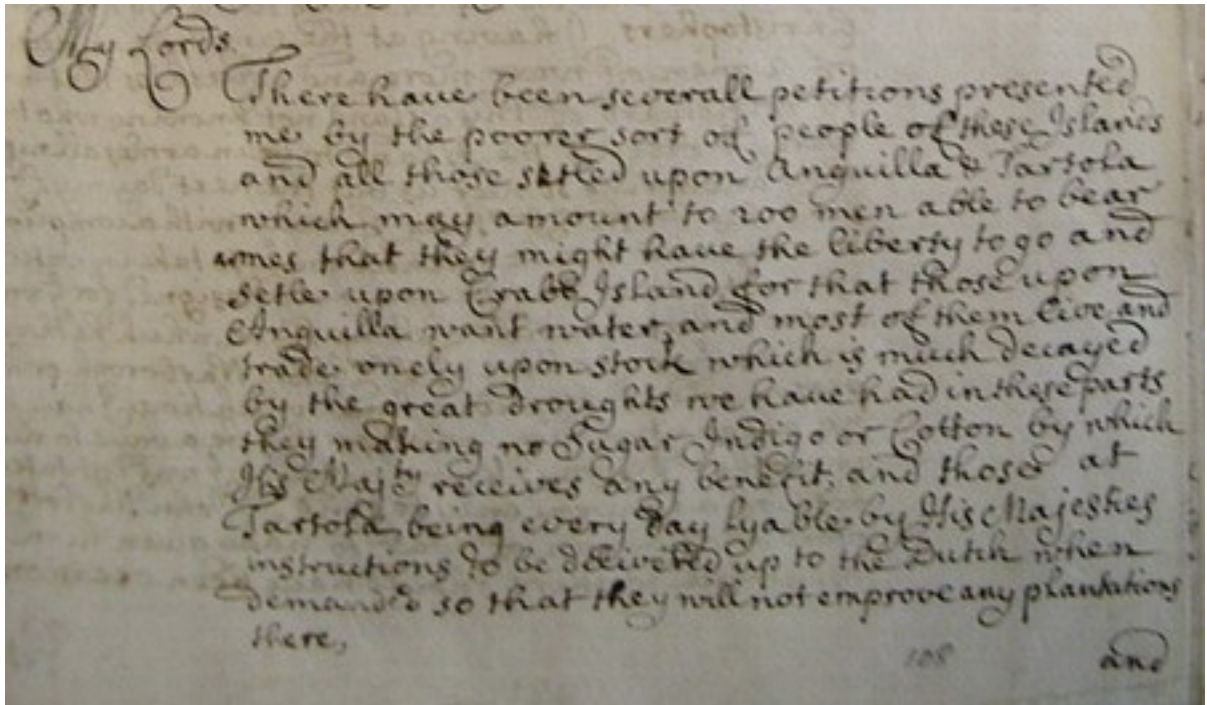 My Lords
There have been severall petitions presented
me by the poorer sort of people of these Islands
and all those setled upon Anguilla & Tartola
which may amount to 200 men able to bear
armes that they might have the liberty to go and
setle upon Crabb Island for that those upon
Anguilla want water, and most of them live and
trade onely upon stock which is much decayed
by the great droughts we have had in these parts
they making no Sugar Indigo or Cotton by which
His Maj:ty receives any benefit: and those at
Tartola being every day lyable by His Majesties
instructions to be delivered up to the Dutch when
demanded so that they will not emprove any plantations
there,
108
and